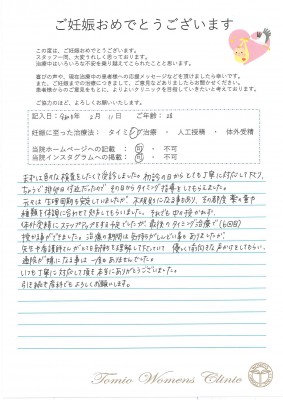 ご妊娠おめでとうございます
この度は、ご妊娠おめでとうございます。
スタッフ一同、大変うれしく思っております。
治療中はいろいろな不安を乗り越えてこられたことと思います。
喜びの声や、現在治療中の患者様への応援メッセージなどを頂けましたら幸いです。
また、ご妊娠までの治療につきまして、ご意見などありましたらお聞かせください。
患者様からのご意見をもとに、よりよいクリニックを目指していきたいと考えております。
ご協力のほど、よろしくお願いいたします。
記入日: 年 月 11日 ご年齢: 28
妊娠に至った治療法: タイミング治療 ・ 人工授精 ・ 体外受精
当院ホームページへの記載 : 可 ・ 不可
当院インスタグラムへの掲載 : 可 ・ 不可
まずは色々な検査をしたくて受診しましたが、初診の日からとても丁寧に対応して下さり、
ちょうど排卵日付近だったので その日からタイミング指導をしてもらえました。
元々は生理周期も安定していましたが、不規則になる事もあり、その都度 薬の量や
種類を体調に合わせて処方してもらいました。それでも中々授かれず、
体外受精にステップアップをする予定でしたが、最後のタイミング治療で(6回目)
授かる事ができました。治療の期間は気持ちがしんどい事もありましたが、
先生や看護師さんがいつも気持ちを理解して下さっていて 優しく前向きな声かけをしてもらい、
通院が嫌になる事は一度もありませんでした。
いつも丁寧に対応して頂き本当にありがとうございました。
引き続き産科でもよろしくお願いします。
Tomio Womens Clinic